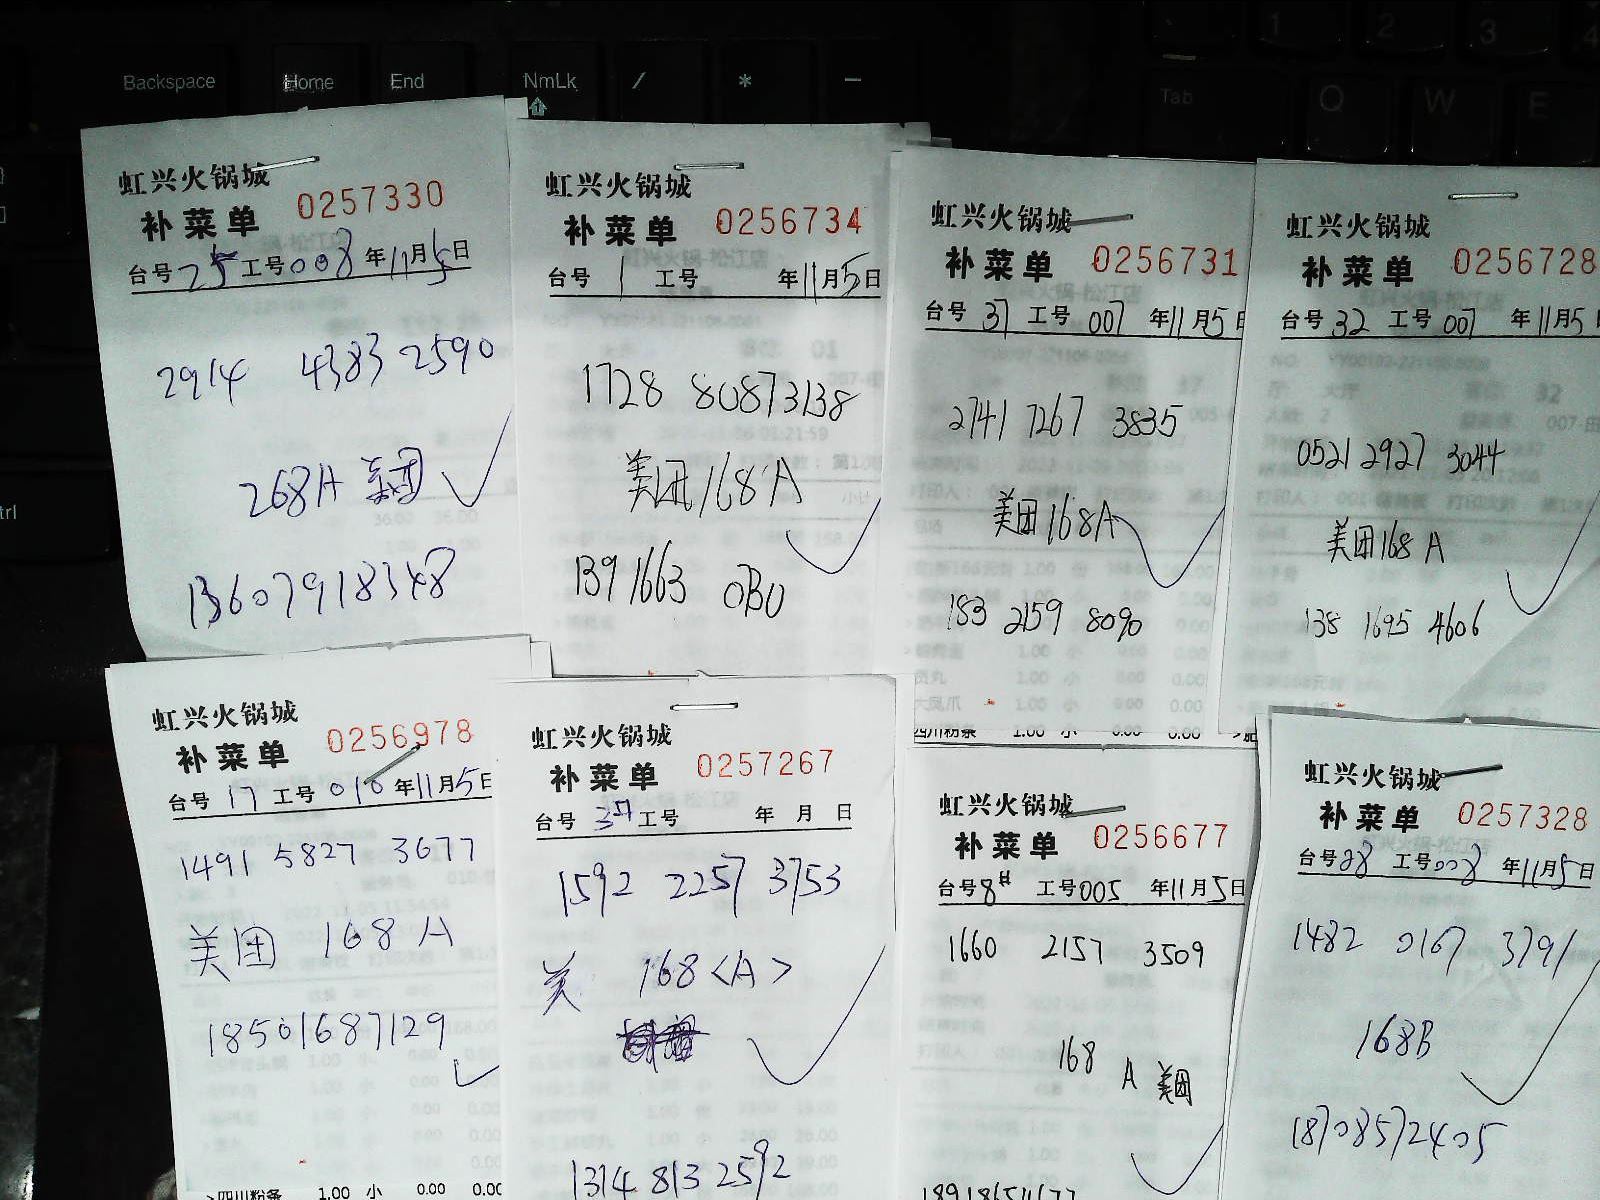 Backspace Home End NmLk / * −
1 2 3 4
Tab Q W E
trl
虹兴火锅城
补菜单 0257330
台号 25 工号 008 年 11 月 5 日
2914 4383 2590
268A 美团
虹兴火锅城
补菜单 0256734
台号 1 工号 年 11 月 5 日
1728 80873138
美团 168 A
1391663
虹兴火锅城
补菜单 0256731
台号 37 工号 007 年 11 月 5 日
2741 7267 3835
美团 168A
183 2159 8090
贡丸 1.00 小 0.00 0.00
大凤爪 1.00 小 0.00 0.00
四川粉条 1.00 小 0.00 0.00
虹兴火锅城
补菜单 0256728
台号 32 工号 007 年 11 月 5
0521 2927 3044
美团 168 A
138 1695 4606
虹兴火锅城
补菜单 0256978
台号 17 工号 010 年 11 月 5 日
1491 5827 3677
美团 168 A
18501687129
四川粉条 1.00 小 0.00 0.00
虹兴火锅城
补菜单 0257267
台号 37 工号 年 月 日
1592 2257 3753
美 168 <A>
1314 813 2592
虹兴火锅城
补菜单 0256677
台号 8# 工号 005 年 11 月 5 日
1660 2157 3509
168 A 美团
虹兴火锅城
补菜单 0257328
台号 28 工号 008 年 11 月 5 日
1482 0167 3791
168B
18708572405